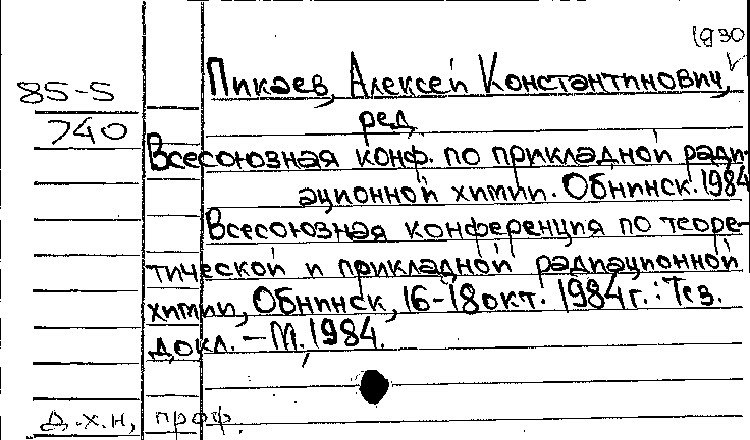 1930
85-5
740
Пикаев, Алексей Константинович,
ред.
Всесоюзная конф. по прикладной ради-
ационной химии. Обнинск. 1984
Всесоюзная конференция по теоре-
тической и прикладной радиационной
химии, Обнинск, 16-18 окт. 1984 г.: Тез.
докл. – М., 1984.
д.х.н, проф.